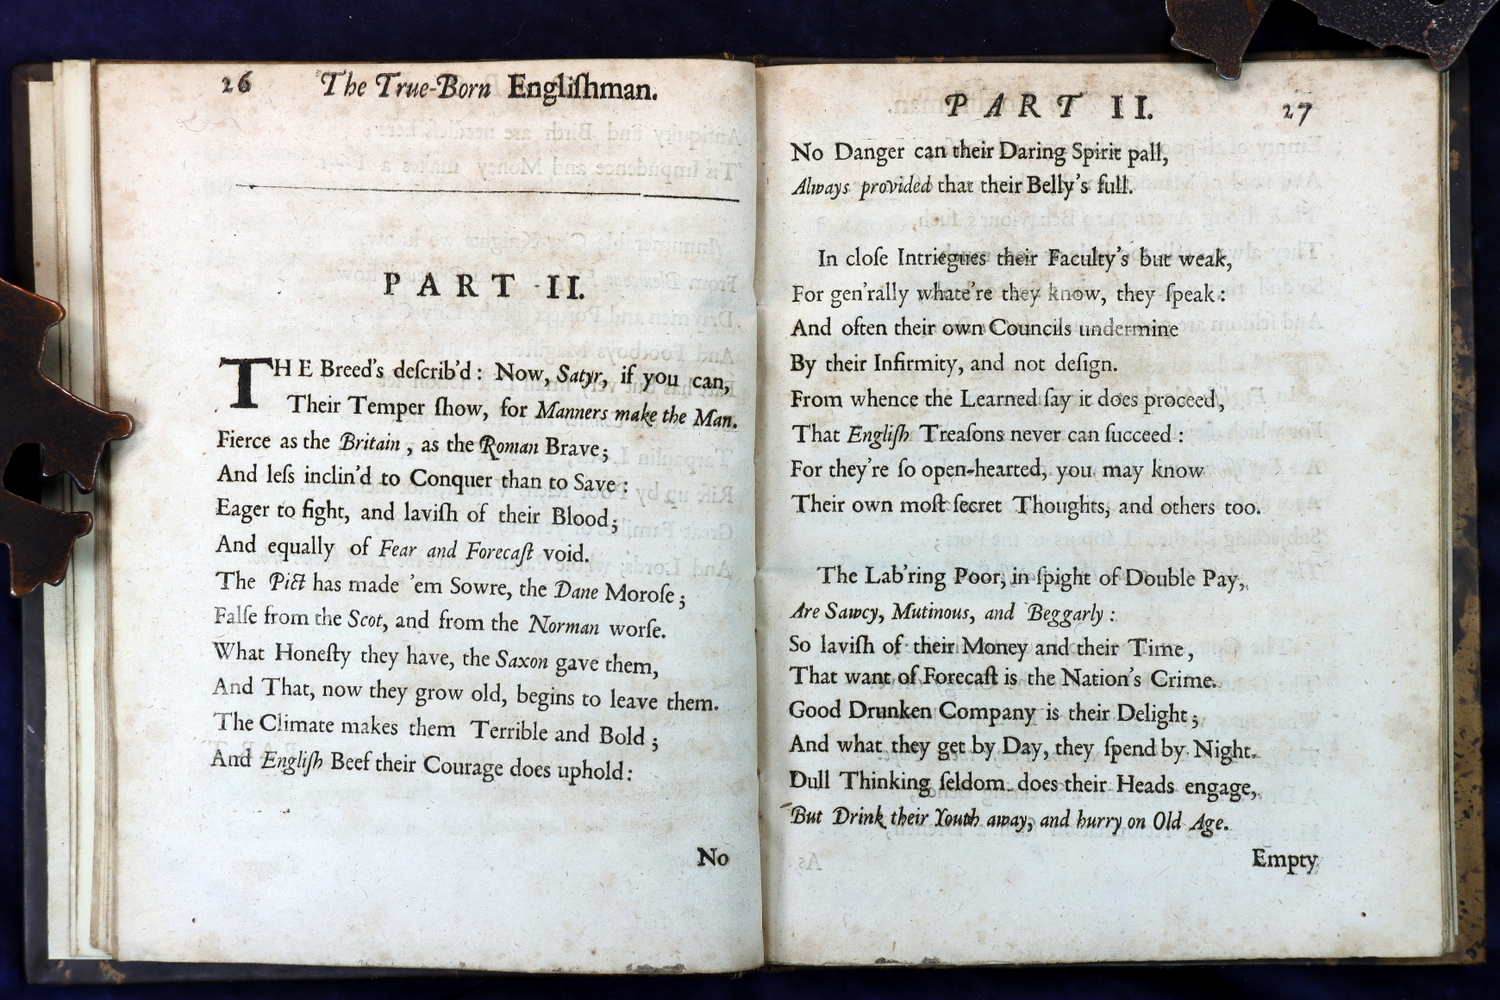 26 The True-Born Engliſhman.
PART II.
THE Breed's deſcrib'd: Now, Satyr, if you can,
Their Temper ſhow, for Manners make the Man.
Fierce as the Britain, as the Roman Brave;
And leſs inclin'd to Conquer than to Save:
Eager to fight, and laviſh of their Blood;
And equally of Fear and Forecaſt void.
The Pict has made 'em Sowre, the Dane Moroſe;
Falſe from the Scot, and from the Norman worſe.
What Honeſty they have, the Saxon gave them,
And That, now they grow old, begins to leave them.
The Climate makes them Terrible and Bold;
And Engliſh Beef their Courage does uphold:
No
PART II. 27
No Danger can their Daring Spirit pall,
Always provided that their Belly's full.
In cloſe Intriegues their Faculty's but weak,
For gen'rally whate're they know, they ſpeak:
And often their own Councils undermine
By their Infirmity, and not deſign.
From whence the Learned ſay it does proceed,
That Engliſh Treaſons never can ſucceed:
For they're ſo open-hearted, you may know
Their own moſt ſecret Thoughts, and others too.
The Lab'ring Poor, in ſpight of Double Pay,
Are Sawcy, Mutinous, and Beggarly:
So laviſh of their Money and their Time,
That want of Forecaſt is the Nation's Crime.
Good Drunken Company is their Delight;
And what they get by Day, they ſpend by Night.
Dull Thinking ſeldom does their Heads engage,
But Drink their Youth away, and hurry on Old Age.
Empty